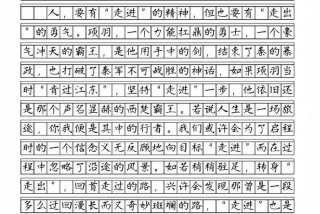 人，要有“走进”的精神，但也要有“走出
”的勇气。项羽，一个力能扛鼎的勇士，一个豪
气冲天的霸王，是他用手中的剑，结束了秦的暴
政，也打破了秦军不可战胜的神话，如果项羽当
时“肯过江东”，坚持“走进”一步，他依旧还
是那个声名显赫的西楚霸王。若说人生是一场旅
途，你我便是其中的行者。我们或许会为了启程
时的一个信念义无反顾地向目标“走进”而在过
程中忽略了沿途的风景。如若稍稍驻足，转身“
走出”，回首而走过的路，兴许会发现那曾是一段
多么过回漫长而又奇妙斑斓的路，“走进”也是